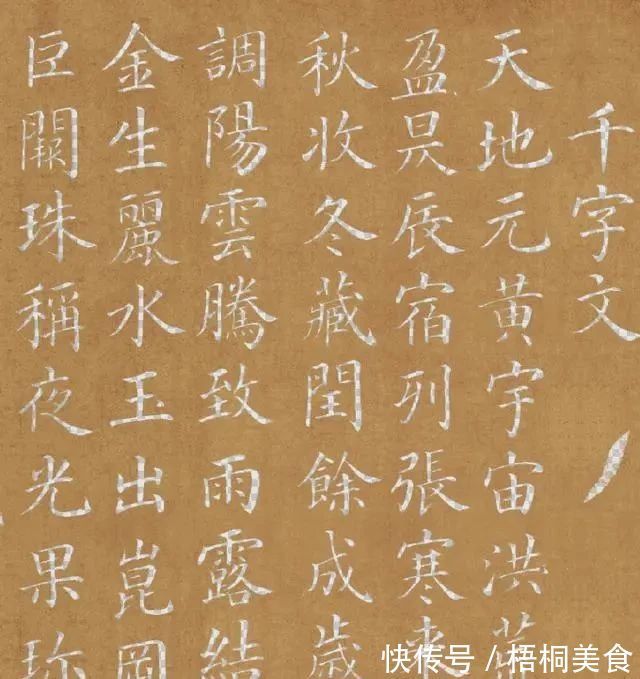 千字文
天地元黄宇宙洪荒
盈昃辰宿列張寒來
秋收冬藏閏餘成歲
調陽雲騰致雨露結
金生麗水玉出崑岡
巨闕珠稱夜光果珍
快传号/梧桐美食